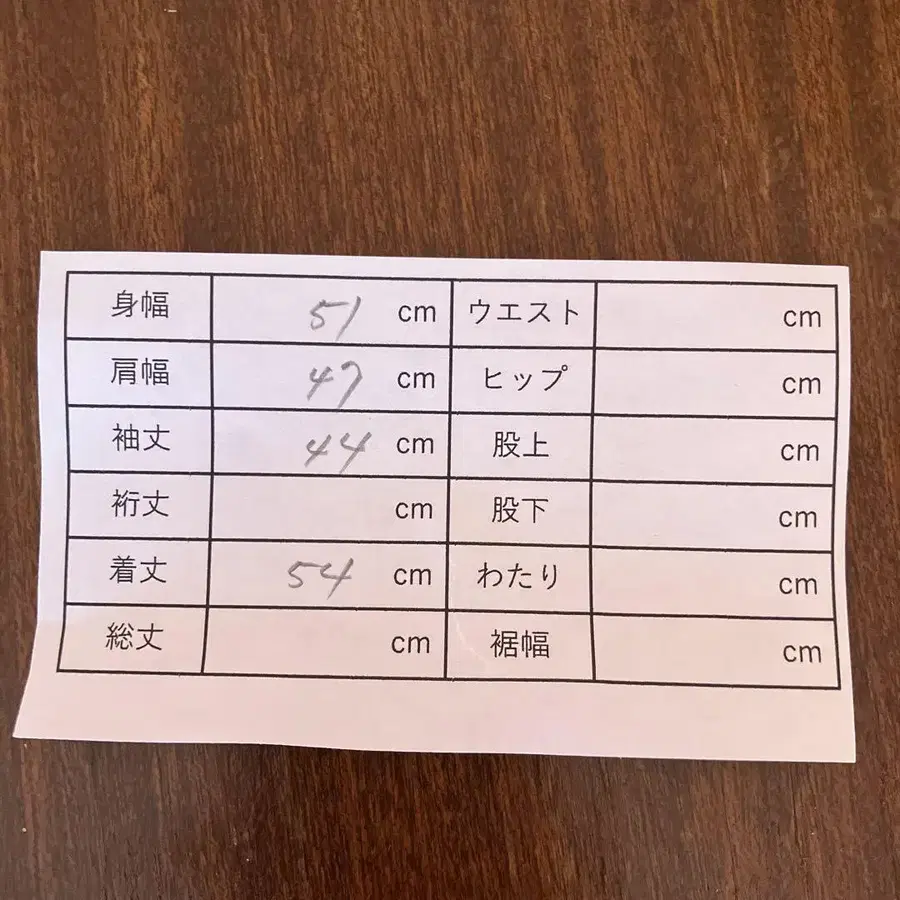 身幅 51 cm ウエスト cm
肩幅 47 cm ヒップ cm
袖丈 44 cm 股上 cm
裄丈 cm 股下 cm
着丈 54 cm わたり cm
総丈 cm 裾幅 cm